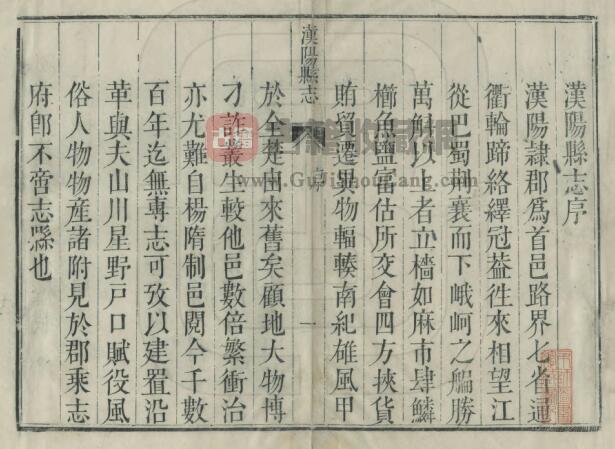 漢陽縣志序
漢陽隷郡爲首邑路界七省通
衢輪蹄絡繹冠葢徃來相望江
從巴蜀荆襄而下峨岢之艑勝
萬斛以上者立檣如麻市肆鱗
櫛魚鹽富估所交會四方挾貨
賄貿遷異物輻輳南紀雄風甲
漢陽縣志
序
一
於全楚由來舊矣顧地大物博
刁詐叢生較他邑數倍繁衝治
亦尤難自楊隋制邑閱今千數
百年迄無專志可攷以建置沿
革與夫山川星野戸口賦役風
俗人物物產諸附見於郡乘志
府卽不啻志縣也
www.GuJiShouCang.com